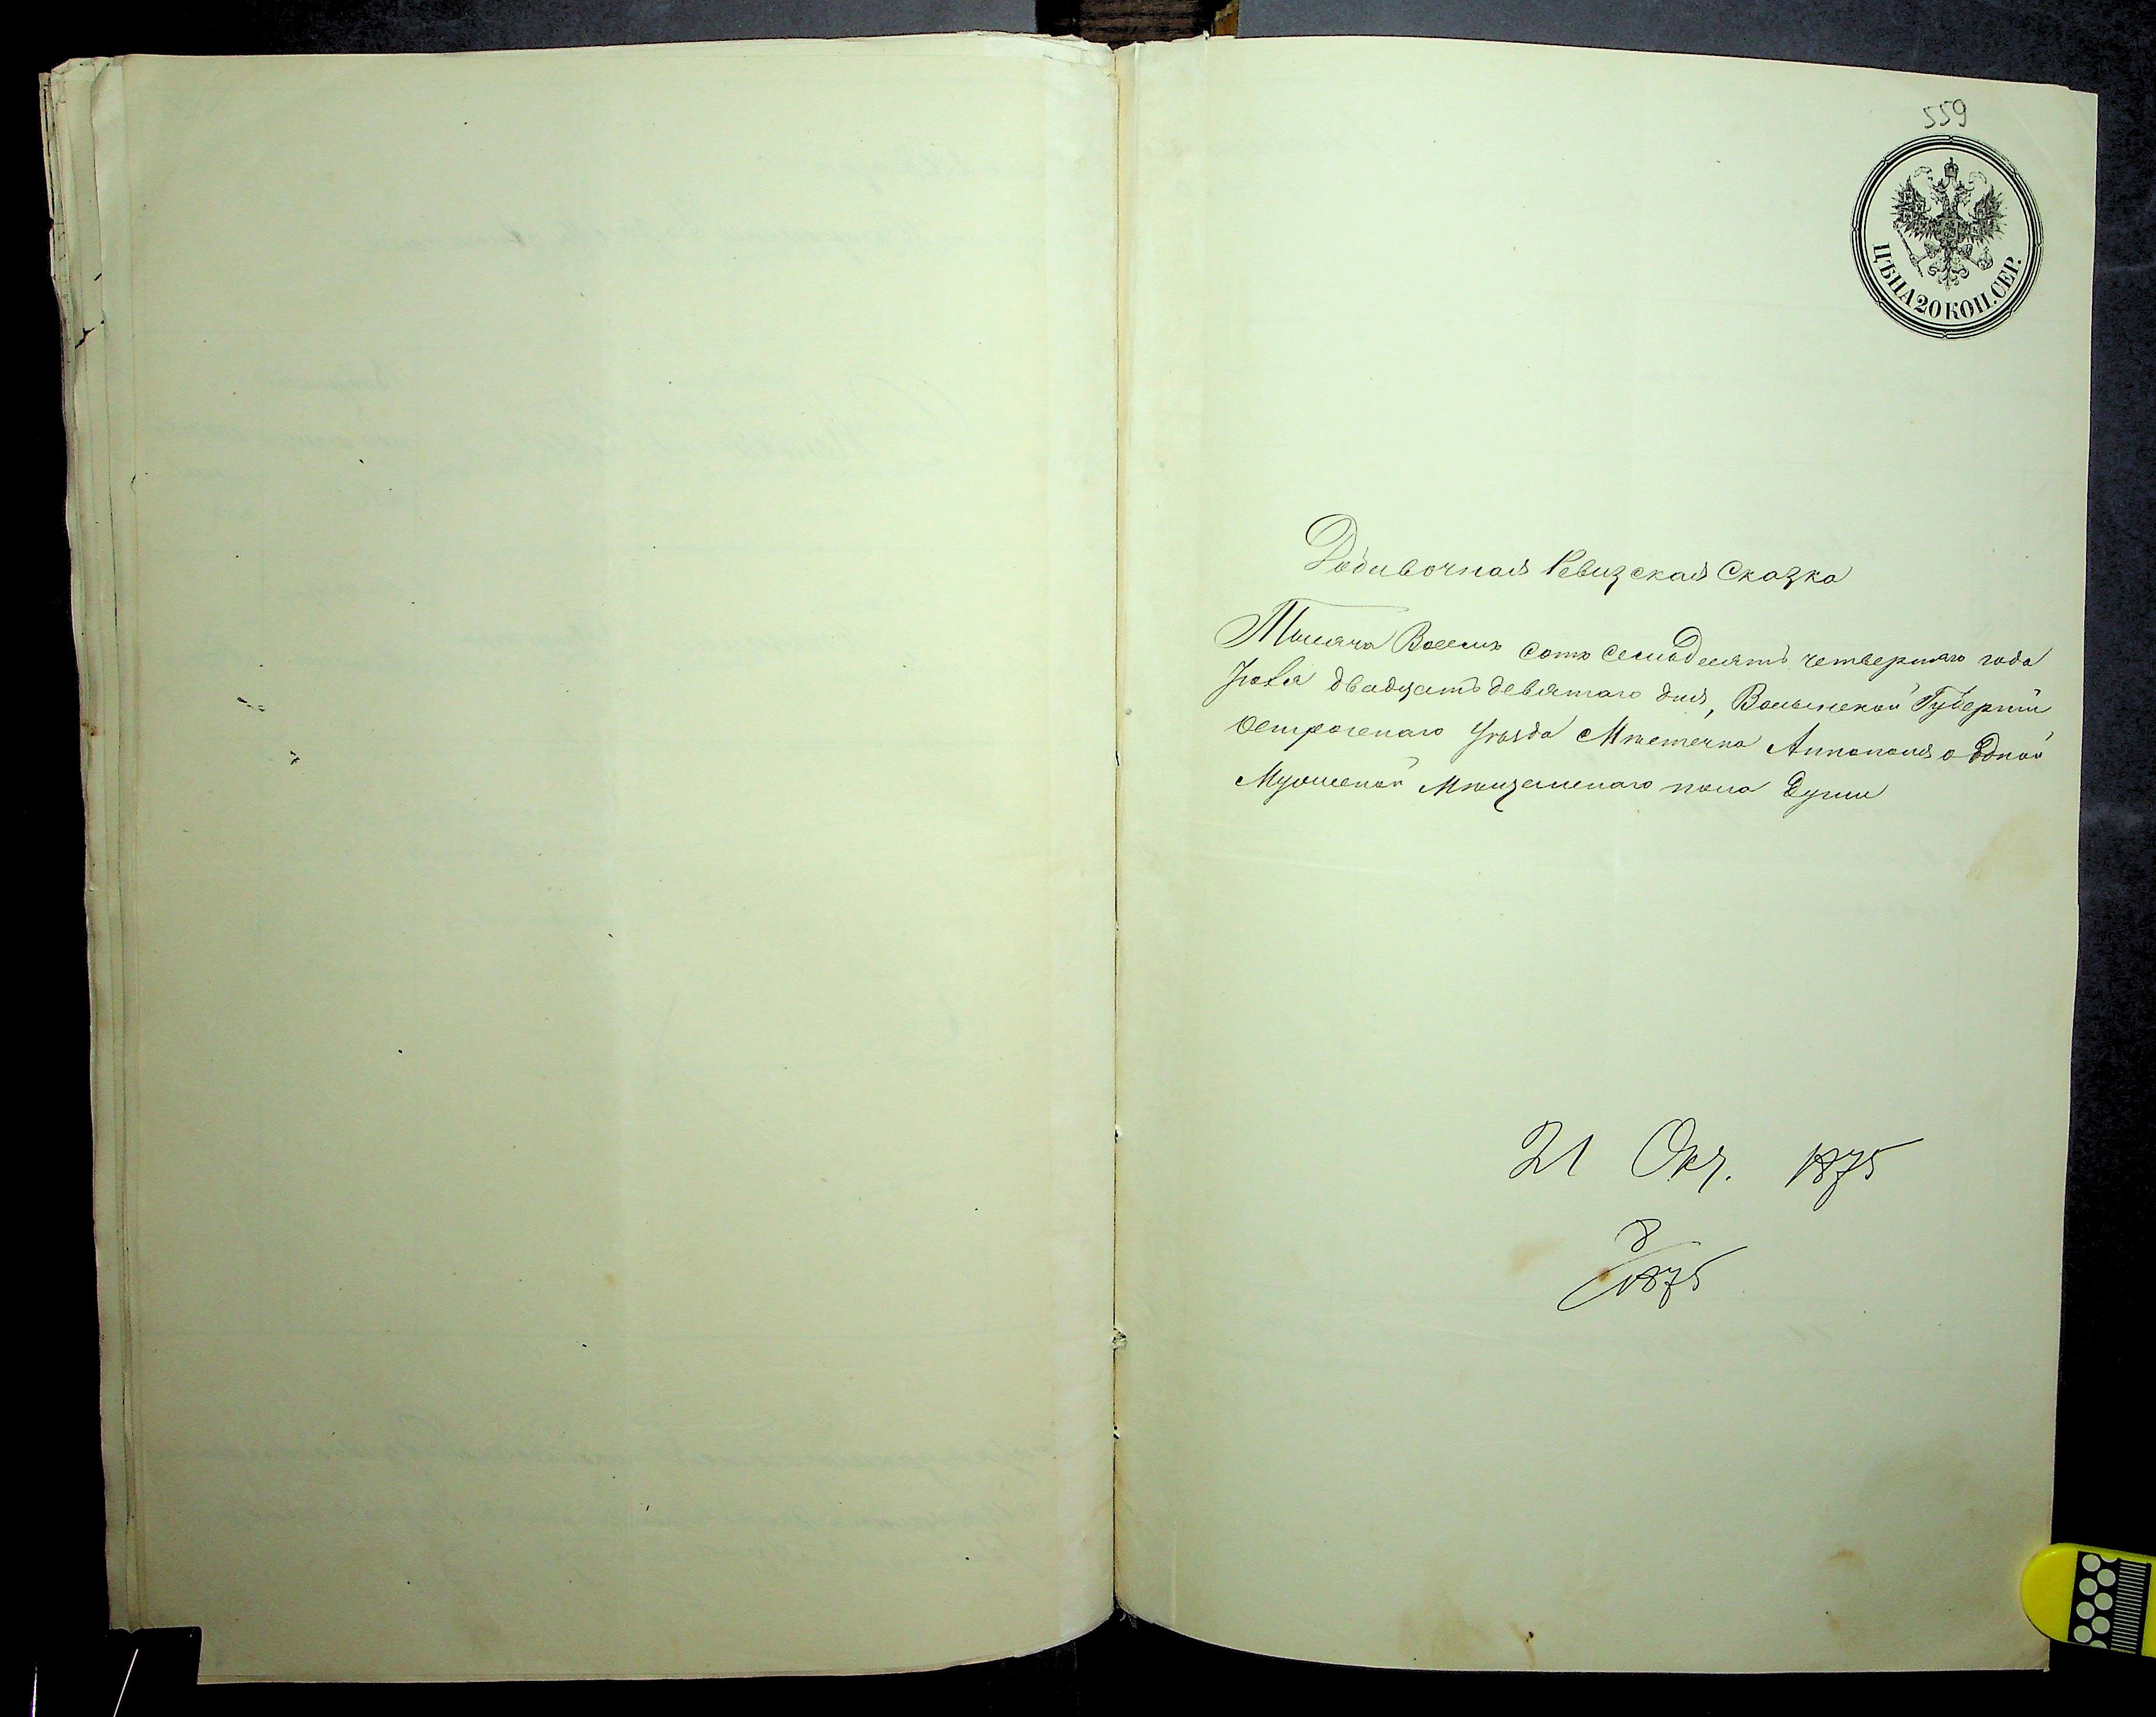 559
ЦѢНА 20 КОП. СЕР.
Добавочная Ревизская Сказка
Тысяча Восемь сотъ семьдесятъ четвертаго года
Іюля двадцать девятаго дня, Волынской Губерніи
Острогскаго уѣзда Мѣстечка Аннополя о Одной
Мужеской Мѣщанскаго пола Души
21 Окт. 1875
8/1875